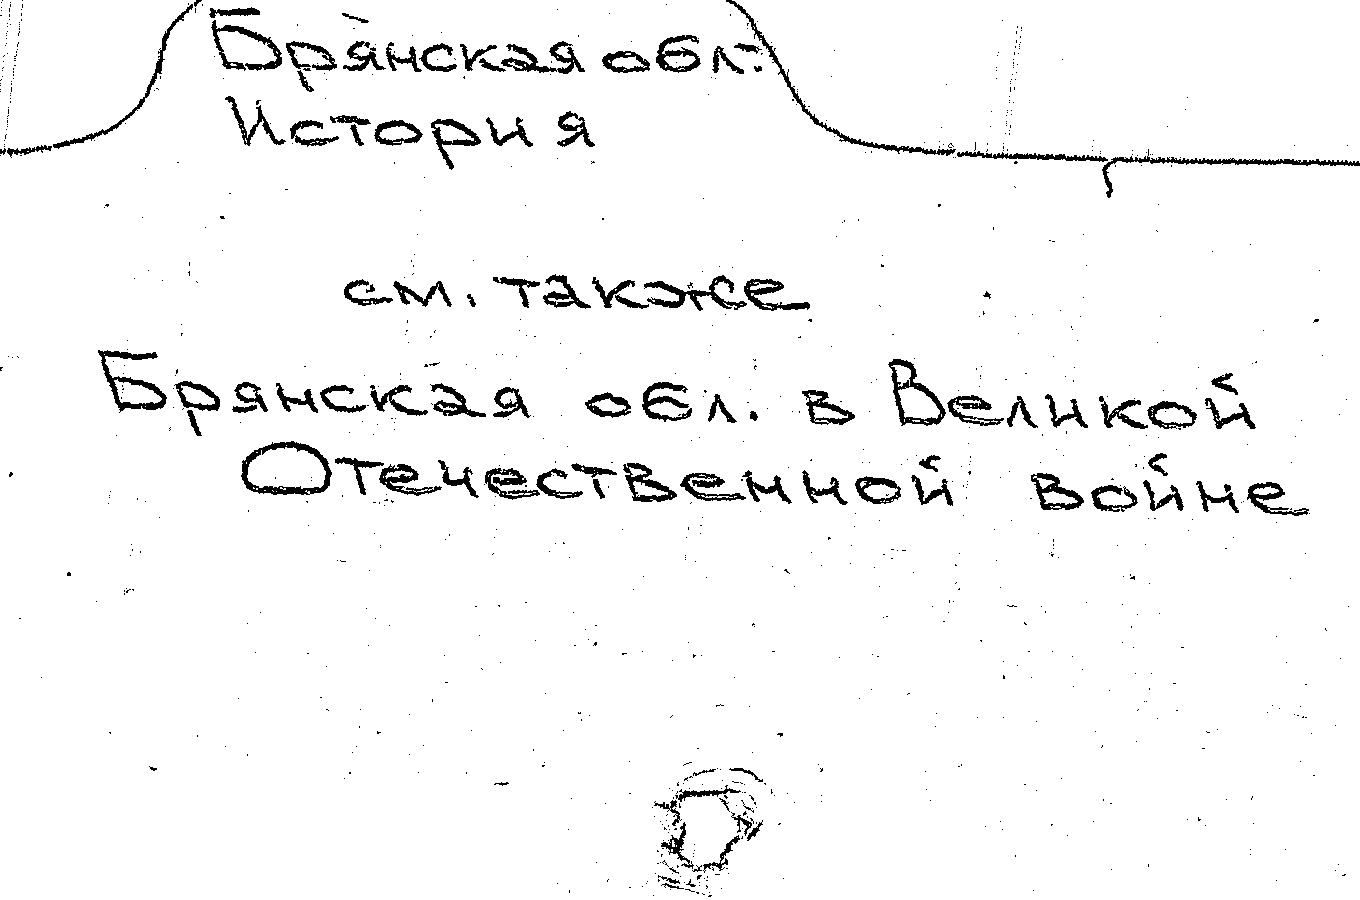 Брянская обл.-
История
см. также
Брянская обл. в Великой
Отечественной войне